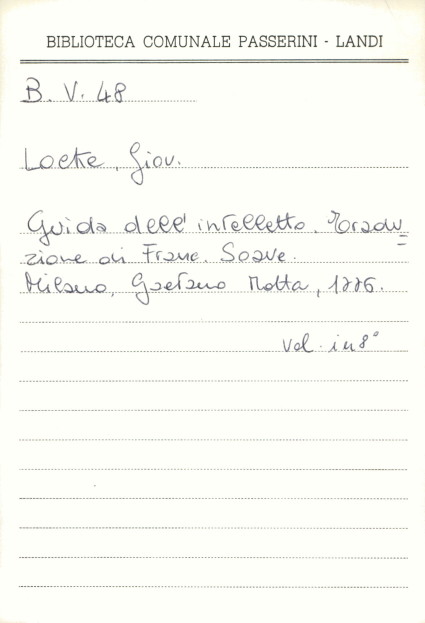 BIBLIOTECA COMUNALE PASSERINI - LANDI
B. V. 48
Locke, Giov.
Guida dell'intelletto. Tradu=
zione di Franc. Soave.
Milano, Gaetano Motta, 1776.
Vol. in 8°